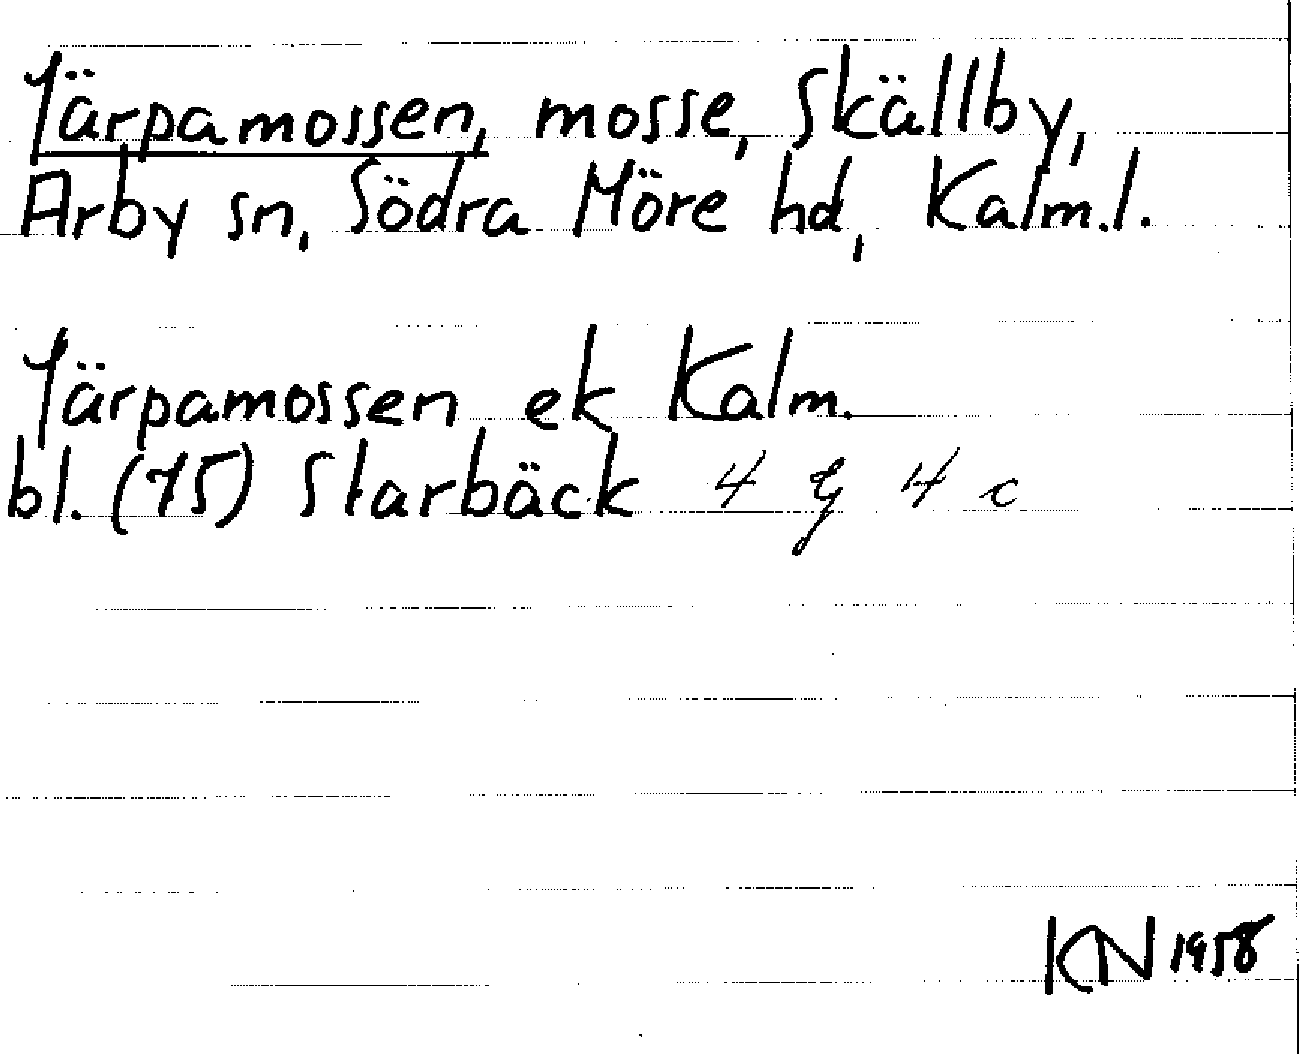 Järpamossen, mosse, Skällby,
Arby sn, Södra Möre hd, Kalm.l.
Järpamossen ek Kalm.
bl. (75) Starbäck 4 G 4 c
KN 1958